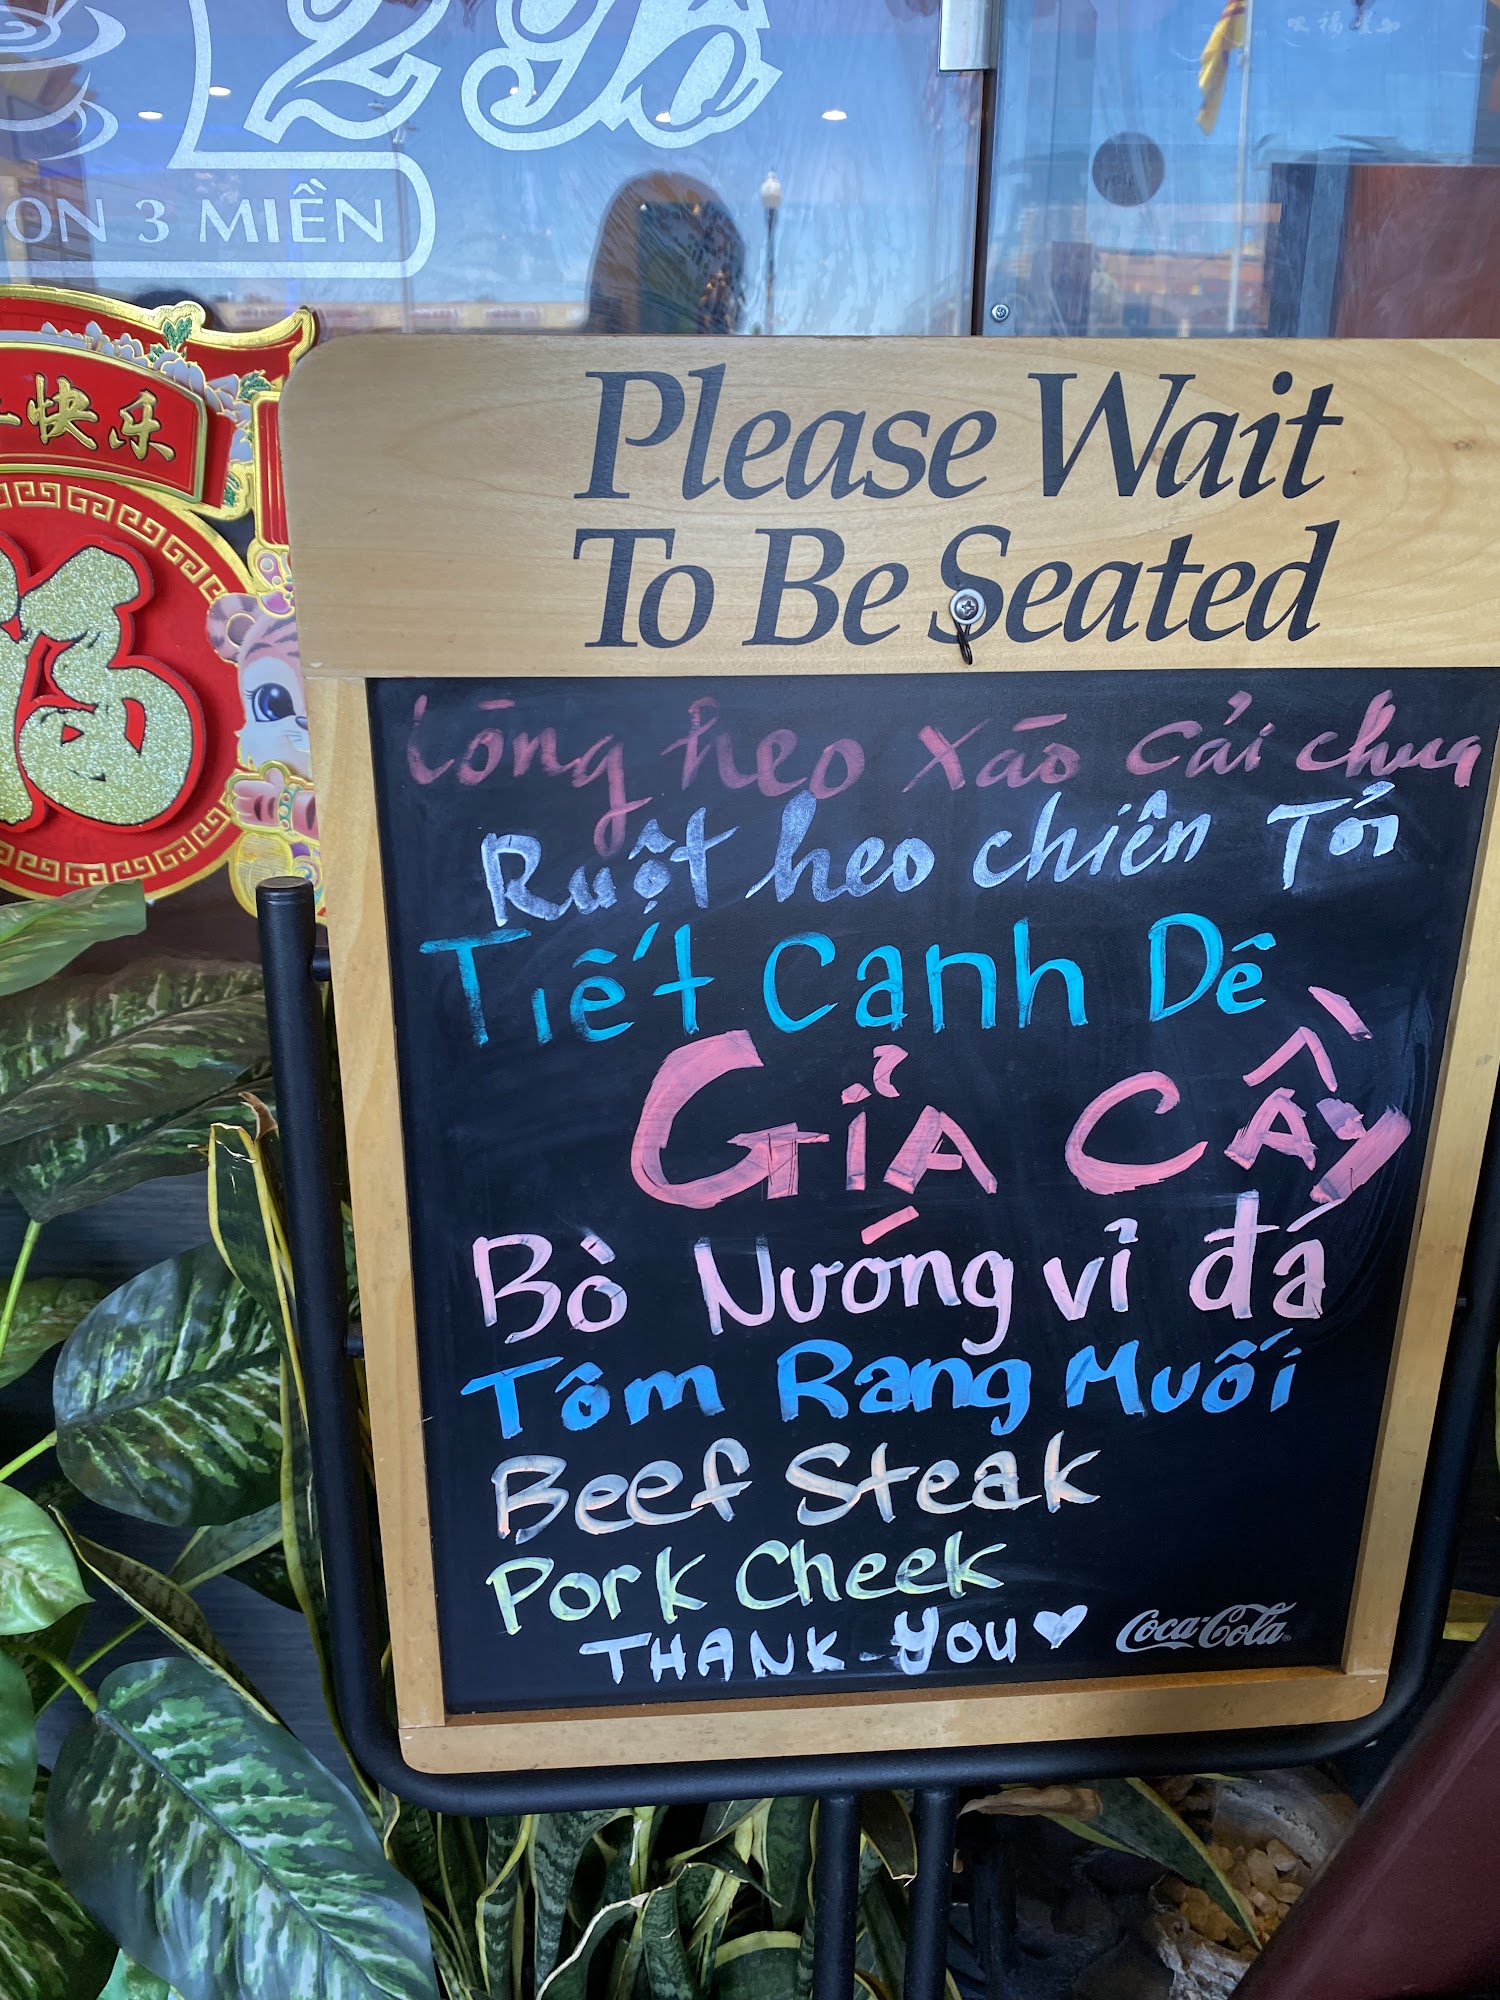 ON 3 MIỀN
快乐
福
Please Wait
To Be Seated
Lòng heo xào cải chua
Ruột heo chiên Tỏi
Tiết Canh Dê
GIẢ CẦY
Bò Nướng vỉ đá
Tôm Rang Muối
Beef Steak
Pork Cheek
THANK YOU
Coca-Cola